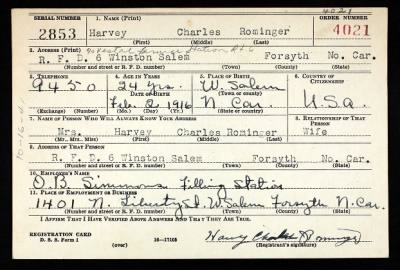 4021
SERIAL NUMBER 1. NAME (Print) ORDER NUMBER
2853 Harvey Charles Rominger 4021
(First) (Middle) (Last)
2. ADDRESS (Print)
R. F. D. 6 Winston Salem Forsyth No. Car.
(Number and street or R. F. D. number) (Town) (County) (State)
3. TELEPHONE 4. AGE IN YEARS 5. PLACE OF BIRTH 6. COUNTRY OF CITIZENSHIP
9450 24 yrs. W. Salem
DATE OF BIRTH (Town or county)
Feb. 2, 1916 N. Car. U.S.A.
(Exchange) (Number) (Mo.) (Day) (Yr.) (State or country)
7. NAME OF PERSON WHO WILL ALWAYS KNOW YOUR ADDRESS 8. RELATIONSHIP OF THAT PERSON
Mrs. Harvey Charles Rominger Wife
(Mr., Mrs., Miss) (First) (Middle) (Last)
9. ADDRESS OF THAT PERSON
R. F. D. 6 Winston Salem Forsyth No. Car.
(Number and street or R. F. D. number) (Town) (County) (State)
10. EMPLOYER'S NAME
O.B. Simmons Filling Station
11. PLACE OF EMPLOYMENT OR BUSINESS
1401 N. Liberty St. W. Salem Forsyth N. Car.
(Number and street or R. F. D. number) (Town) (County) (State)
I AFFIRM THAT I HAVE VERIFIED ABOVE ANSWERS AND THAT THEY ARE TRUE.
REGISTRATION CARD
D. S. S. Form 1 (over) 16—17105
Harvey Charles Rominger
(Registrant's signature)
10-16-41